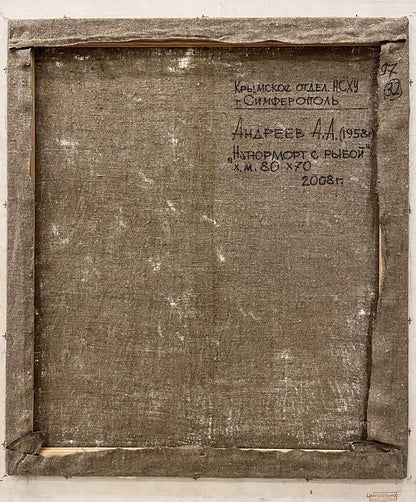 Крымское отдел. НСХУ
г. Симферополь
97
32
Андреев А.А. (1958)
"Натюрморт с рыбой"
х.м. 80 х 70
2008 г.